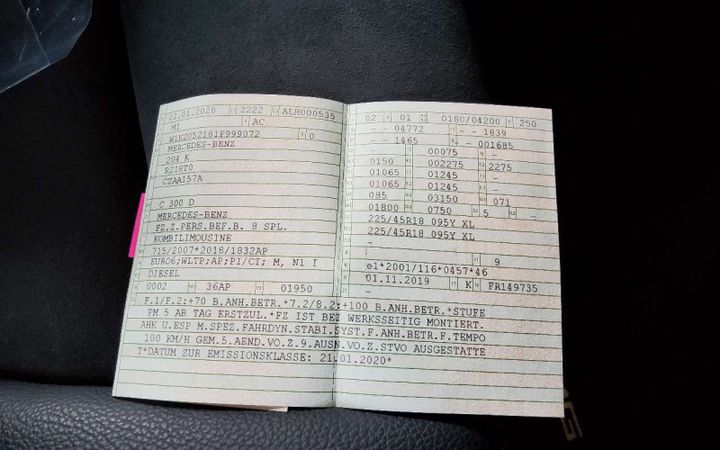 21.01.2020 2222 ALH000535
M1 AC
W1K2052181F999072 0
MERCEDES-BENZ
204 K
R2I8T0
CZAAI57A
C 300 D
MERCEDES-BENZ
FZ.Z.PERS.BEF.B. 8 SPL.
KOMBILIMOUSINE
715/2007*2018/1832AP
EURO6;WLTP;AP;PI/CI; M, N1 I
DIESEL
0002 36AP 01950
02 01 0180/04200 250
- - 04772 - 1839
- - 1465 - 001685
- 00075 -
0150 002275 2275
01065 01245 -
01065 01245 -
085 03150 071
01800 0750 5 -
225/45R18 095Y XL
225/45R18 095Y XL
-
- 9
e1*2001/116*0457*46
01.11.2019 K FR149735
F.1/F.2:+70 B.ANH.BETR.*7.2/8.2:+100 B.ANH.BETR.*STUFE
PM 5 AB TAG ERSTZUL.*FZ IST BEI WERKSSEITIG MONTIERT.
AHK U.ESP M.SPEZ.FAHRDYN.STABI.SYST.F.ANH.BETR.F.TEMPO
100 KM/H GEM.5.AEND.VO.Z.9.AUSN.VO.Z.STVO AUSGESTATTE
T*DATUM ZUR EMISSIONSKLASSE: 21.01.2020*